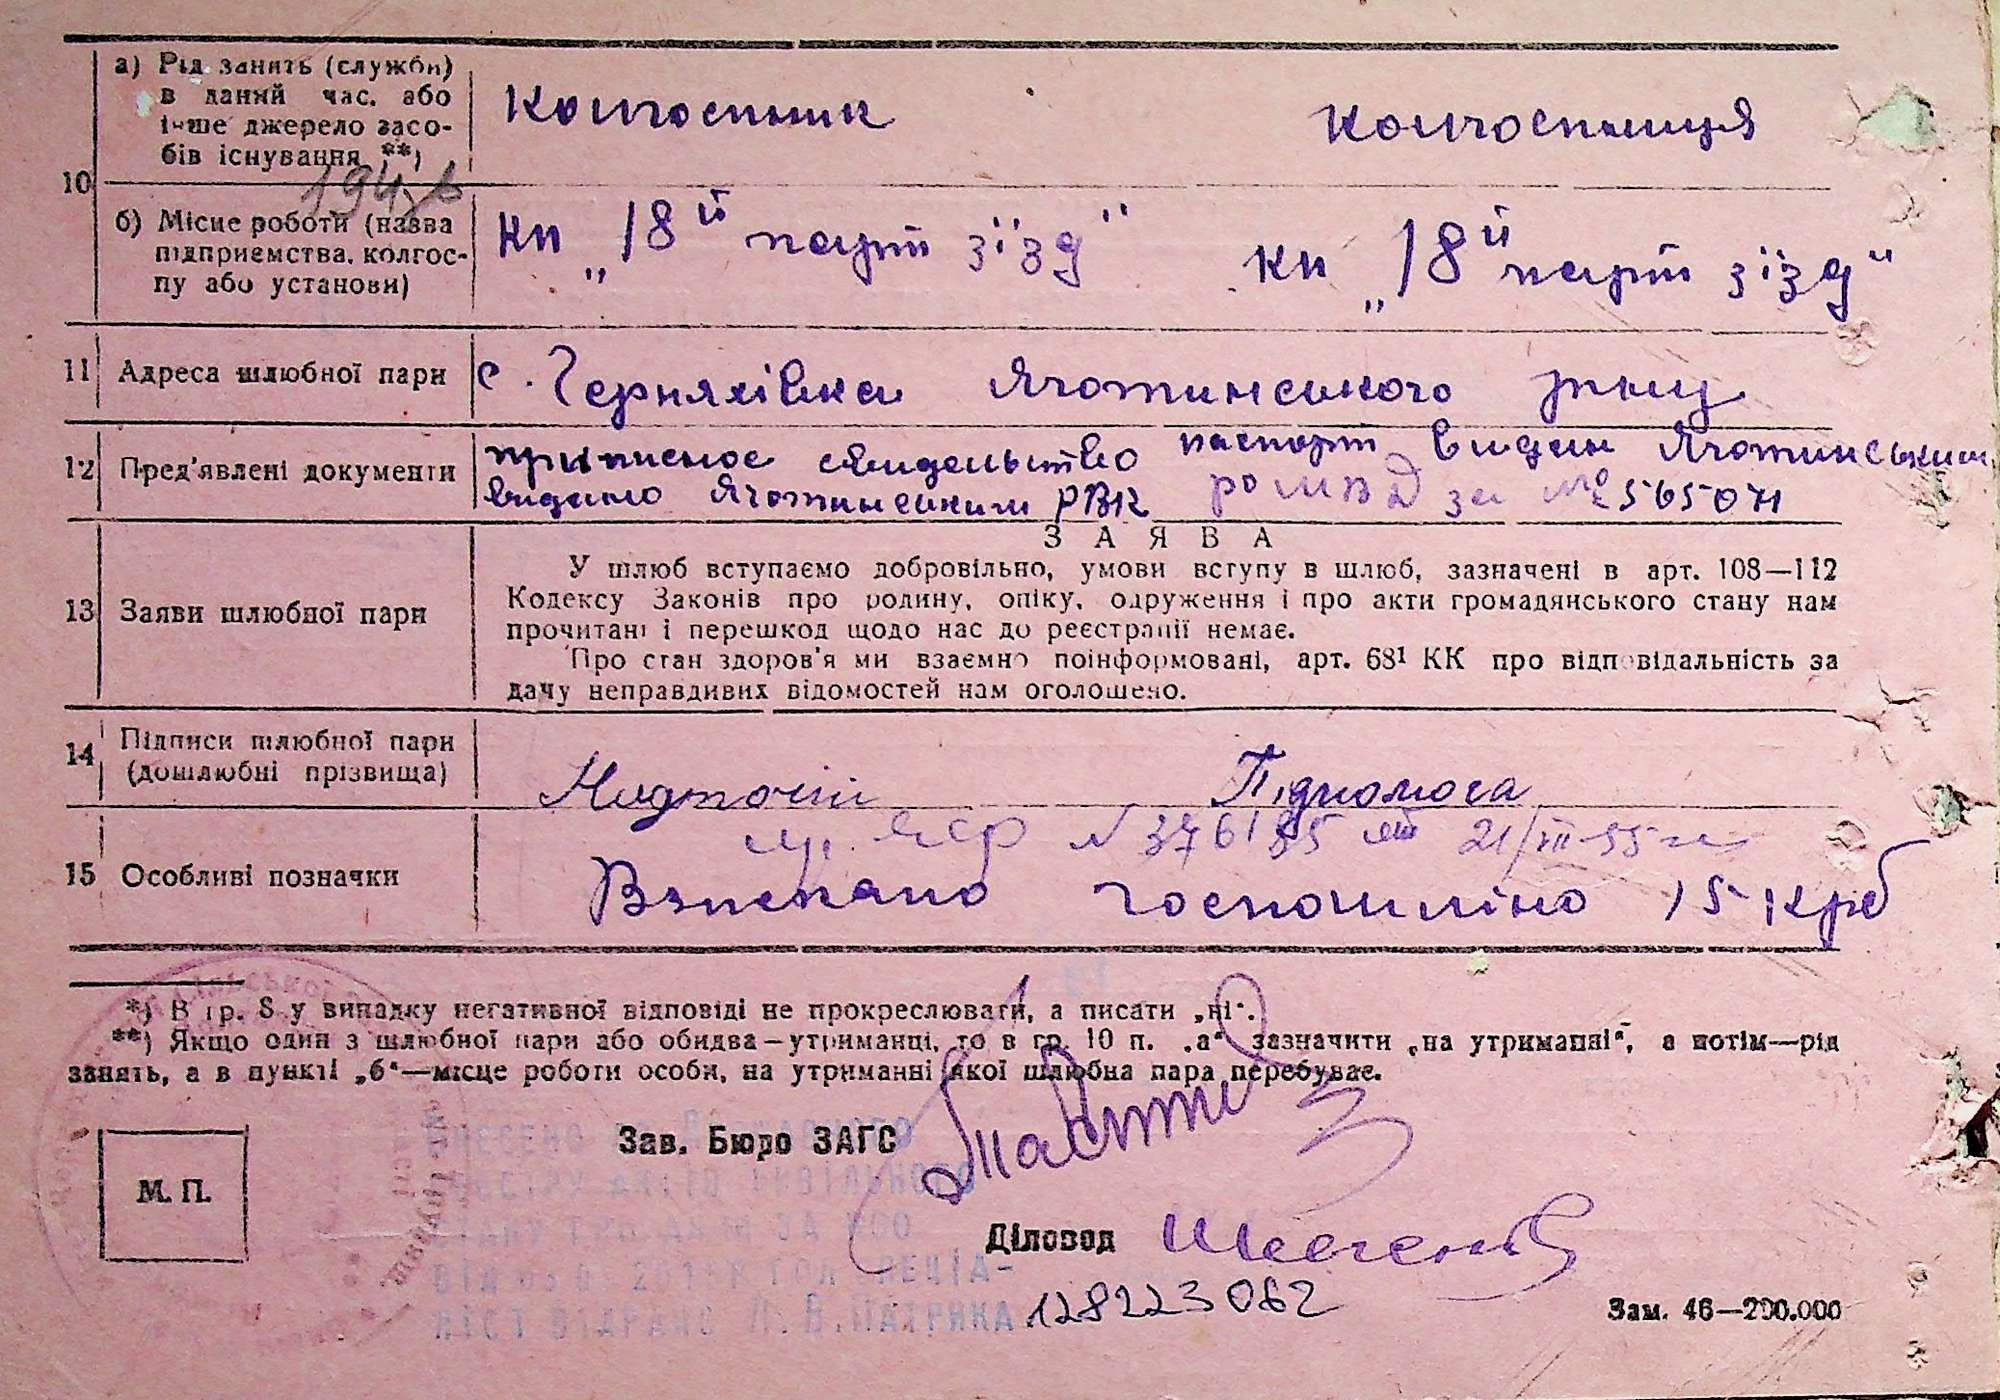 10
а) Рід занять (служби) в даний час, або інше джерело засобів існування **)
колгоспник колгоспниця
б) Місце роботи (назва підприємства, колгоспу або установи)
кп „18й парт зїзд" кп „18й парт зїзд"
11 Адреса шлюбної пари с. Черняхівка Яготинського р-ну
12 Пред'явлені документи
приписное свидетельство паспорт видан Яготинським
видано Яготинським РВК РОМВД за № 565071
13 Заяви шлюбної пари
ЗАЯВА
У шлюб вступаємо добровільно, умови вступу в шлюб, зазначені в арт. 108—112
Кодексу Законів про родину, опіку, одруження і про акти громадянського стану нам
прочитані і перешкод щодо нас до реєстрації немає.
Про стан здоров'я ми взаємно поінформовані, арт. 68¹ КК про відповідальність за
дачу неправдивих відомостей нам оголошено.
14 Підписи шлюбної пари (дошлюбні прізвища)
Надточій Підпомога
15 Особливі позначки
N 376185 21/III-55
Взискано госпошліно 15 крб
*) В гр. 8 у випадку негативної відповіді не прокреслювати, а писати „ні".
**) Якщо один з шлюбної пари або обидва—утриманці, то в гр. 10 п. „а" зазначити „на утриманні", а потім—рід
занять, а в пункті „б"—місце роботи особи, на утриманні якої шлюбна пара перебуває.
Зав. Бюро ЗАГС
М. П.
Діловод
128223062
Зам. 46—200.000